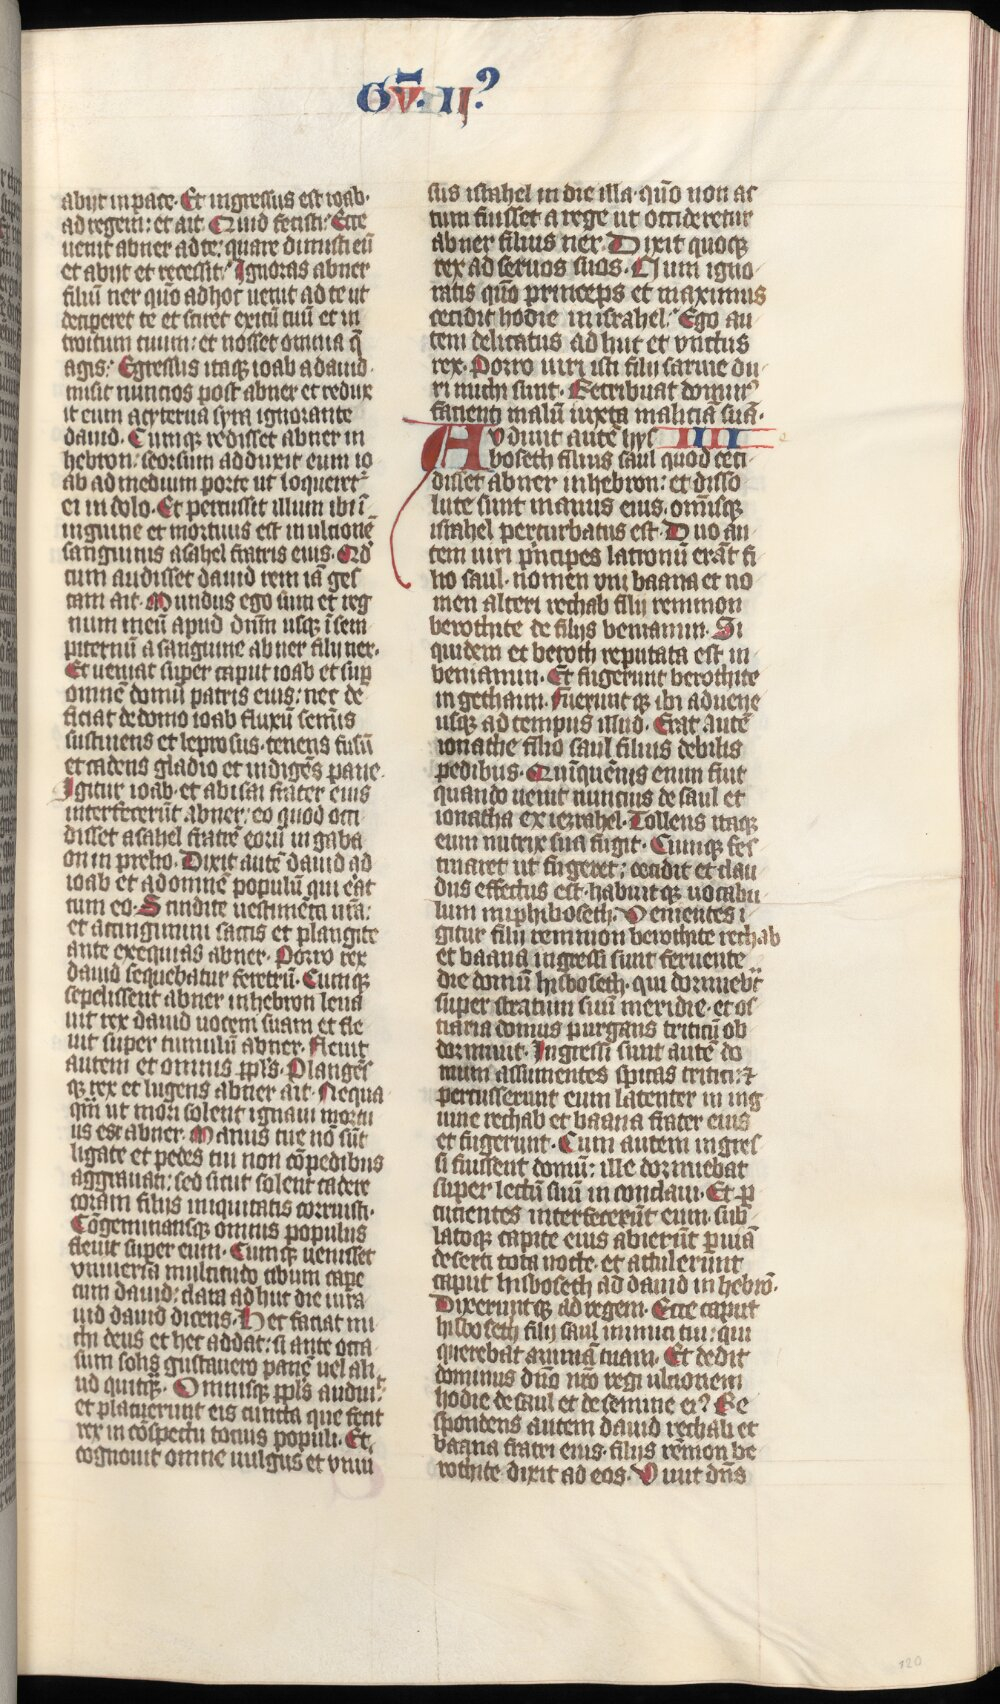 Gv̄. II.
abijt in pace. Et ingressus est ioab.
ad regem: et ait Quid fecisti? Ecce
uenit abner ad te: quare dimisisti eū
et abijt et recessit? Ignoras abner
filiū ner qm̄o ad hoc uenit ad te ut
deciperet te et sciret exitū tuū et in
troitum tuum: et nosset omnia q̄
agis? Egressus itaqꝫ ioab a dauid.
misit nuncios post abner et redux
it eum a cysterna syra ignorante
dauid. Cumqꝫ redisset abner in
hebron: seorsum adduxit eum io
ab ad medium porte ut loqueret᷑
ei in dolo. Et percussit illum ibi ī
inguine et mortuus est in ultionē
sanguinis asahel fratris eius. Qd̓
cum audisset dauid rem iā ges
tam ait. Mundus ego sum et reg
num meū apud dn̄m usqꝫ ī sem
piternū a sanguine abner filij ner.
Et ueniat super caput ioab et sup̄
omnē domū patris eius: nec de
ficiat de domo ioab fluxū sem̄is
sustinens et leprosus. tenens fusū
et cadens gladio et indigēs pane.
Igitur ioab et abisai frater eius
interfecerūt abner: eo quod occi
disset asahel fratrē eorū in gaba
on in prelio. Dixit autē dauid ad
ioab et ad omnē populū qui er̄at
cum eo. Scindite uestimēta ur̄a:
et accingimini saccis et plangite
ante exequias abner. Porro rex
dauid sequebatur feretrū. Cumqꝫ
sepelissent abner in hebron leua
uit rex dauid uocem suam et fle
uit super tumulū abner. fleuit
autem et omnis ppl̄s. Plangēs
qꝫ rex et lugens abner ait. Nequa
qm̄ ut mori solent ignaui mortu
us est abner. Manus tue nō sūt
ligate et pedes tui non cōpedibus
aggrauati: sed sicut solent cadere
coram filijs iniquitatis corruisti.
Cōgeminansqꝫ omnis populus
fleuit super eum. Cumqꝫ uenisset
vniuersa multitudo cibum cape
cum dauid: clara adhuc die iura
uid dauid dicens. Hec faciat mi
chi deus et hec addat: si ante occa
sum solis gustauero panē uel ali
ud quitqꝫ. Omnisqꝫ ppl̄s audiuit.
et placuerunt eis cuncta que fecit
rex in cōspectu tocius populi. Et
cognouit omne uulgus et vniu
sus israhel in die illa. qm̄o non ac
tum fuisset a rege ut occideretur
abner filius ner. Dixit quoqꝫ
rex ad seruos suos. Num igno
ratis qm̄o princeps et maximus
cecidit hodie in israhel? Ego au
tem delicatus adhuc et vnctus
rex. Porro uiri isti filij saruie du
ri michi sunt. Retribuat domin᷒
facienti malū iuxta maliciā suā.
Avdiuit autē hys IIII
boseth filius saul quod ceci
disset abner in hebron: et disso
lute sunt manus eius. omīsqꝫ
israhel perturbatus est. Duo au
tem uiri p̓ncipes latronū erāt fi
lio saul. nomen vni baana et no
men alteri rechab filij remmon
berothite de filijs beniamin. Si
quidem et beroth reputata est in
beniamin. Et fugerunt berothite
in gethaim. fueruntqꝫ ibi aduene
usqꝫ ad tempus illud. Erat autē
ionathe filio saul filius debilis
pedibus. Quīquēnis enim fuit
quando uenit nuncius de saul et
ionatha ex iezrahel. Tollens itaqꝫ
eum nutrix sua fugit. Cumqꝫ fes
tinaret ut fugeret: cecidit et clau
dus effectus est. habuitqꝫ uocabu
lum miphiboseth. Venientes i
gitur filij remmon berothite rechab
et baana ingressi sunt feruente
die domū hisboseth. qui dormiebat
super stratum suū meridie. et os
tiaria domus purgans triticū ob
dormiuit. Ingressi sunt autē do
mum assumentes spicas tritici: ⁊
percusserunt eum latenter in ing
uine rechab et baana frater eius
et fugerunt. Cum autem ingres
si fuissent domū: ille dormiebat
super lectū suū in conclaui. Et ꝑ
cucientes interfecerūt eum. sub
latoqꝫ capite eius abierūt ꝑ uiā
deserti tota nocte. et attulerunt
caput hisboseth ad dauid in hebrō.
Dixeruntqꝫ ad regem. Ecce caput
hisboseth filij saul inimici tui: qui
querebat animā tuam. Et dedit
dominus dn̄o nr̄o regi ulcionem
hodie de saul et de semine ei᷒. Re
spondens autem dauid rechab et
baana fratri eius. filijs rēmon be
rothite dixit ad eos. Viuit dn̄s
120